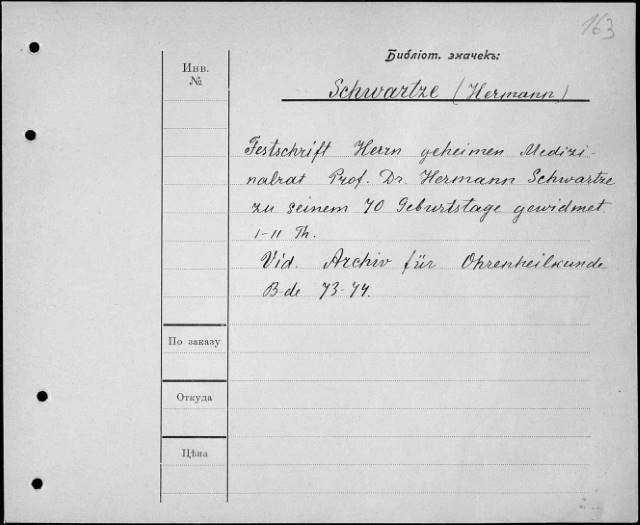 163
Библіот. значекъ:
Инв.
№
Schwartze (Hermann)
Festschrift Herrn geheimen Medizi-
nalrat Prof. Dr. Hermann Schwartze
zu seinem 70 Geburtstage gewidmet.
I-II Th.
Vid. Archiv für Ohrenheilkunde
B-de 73-74.
По заказу
Откуда
Цѣна